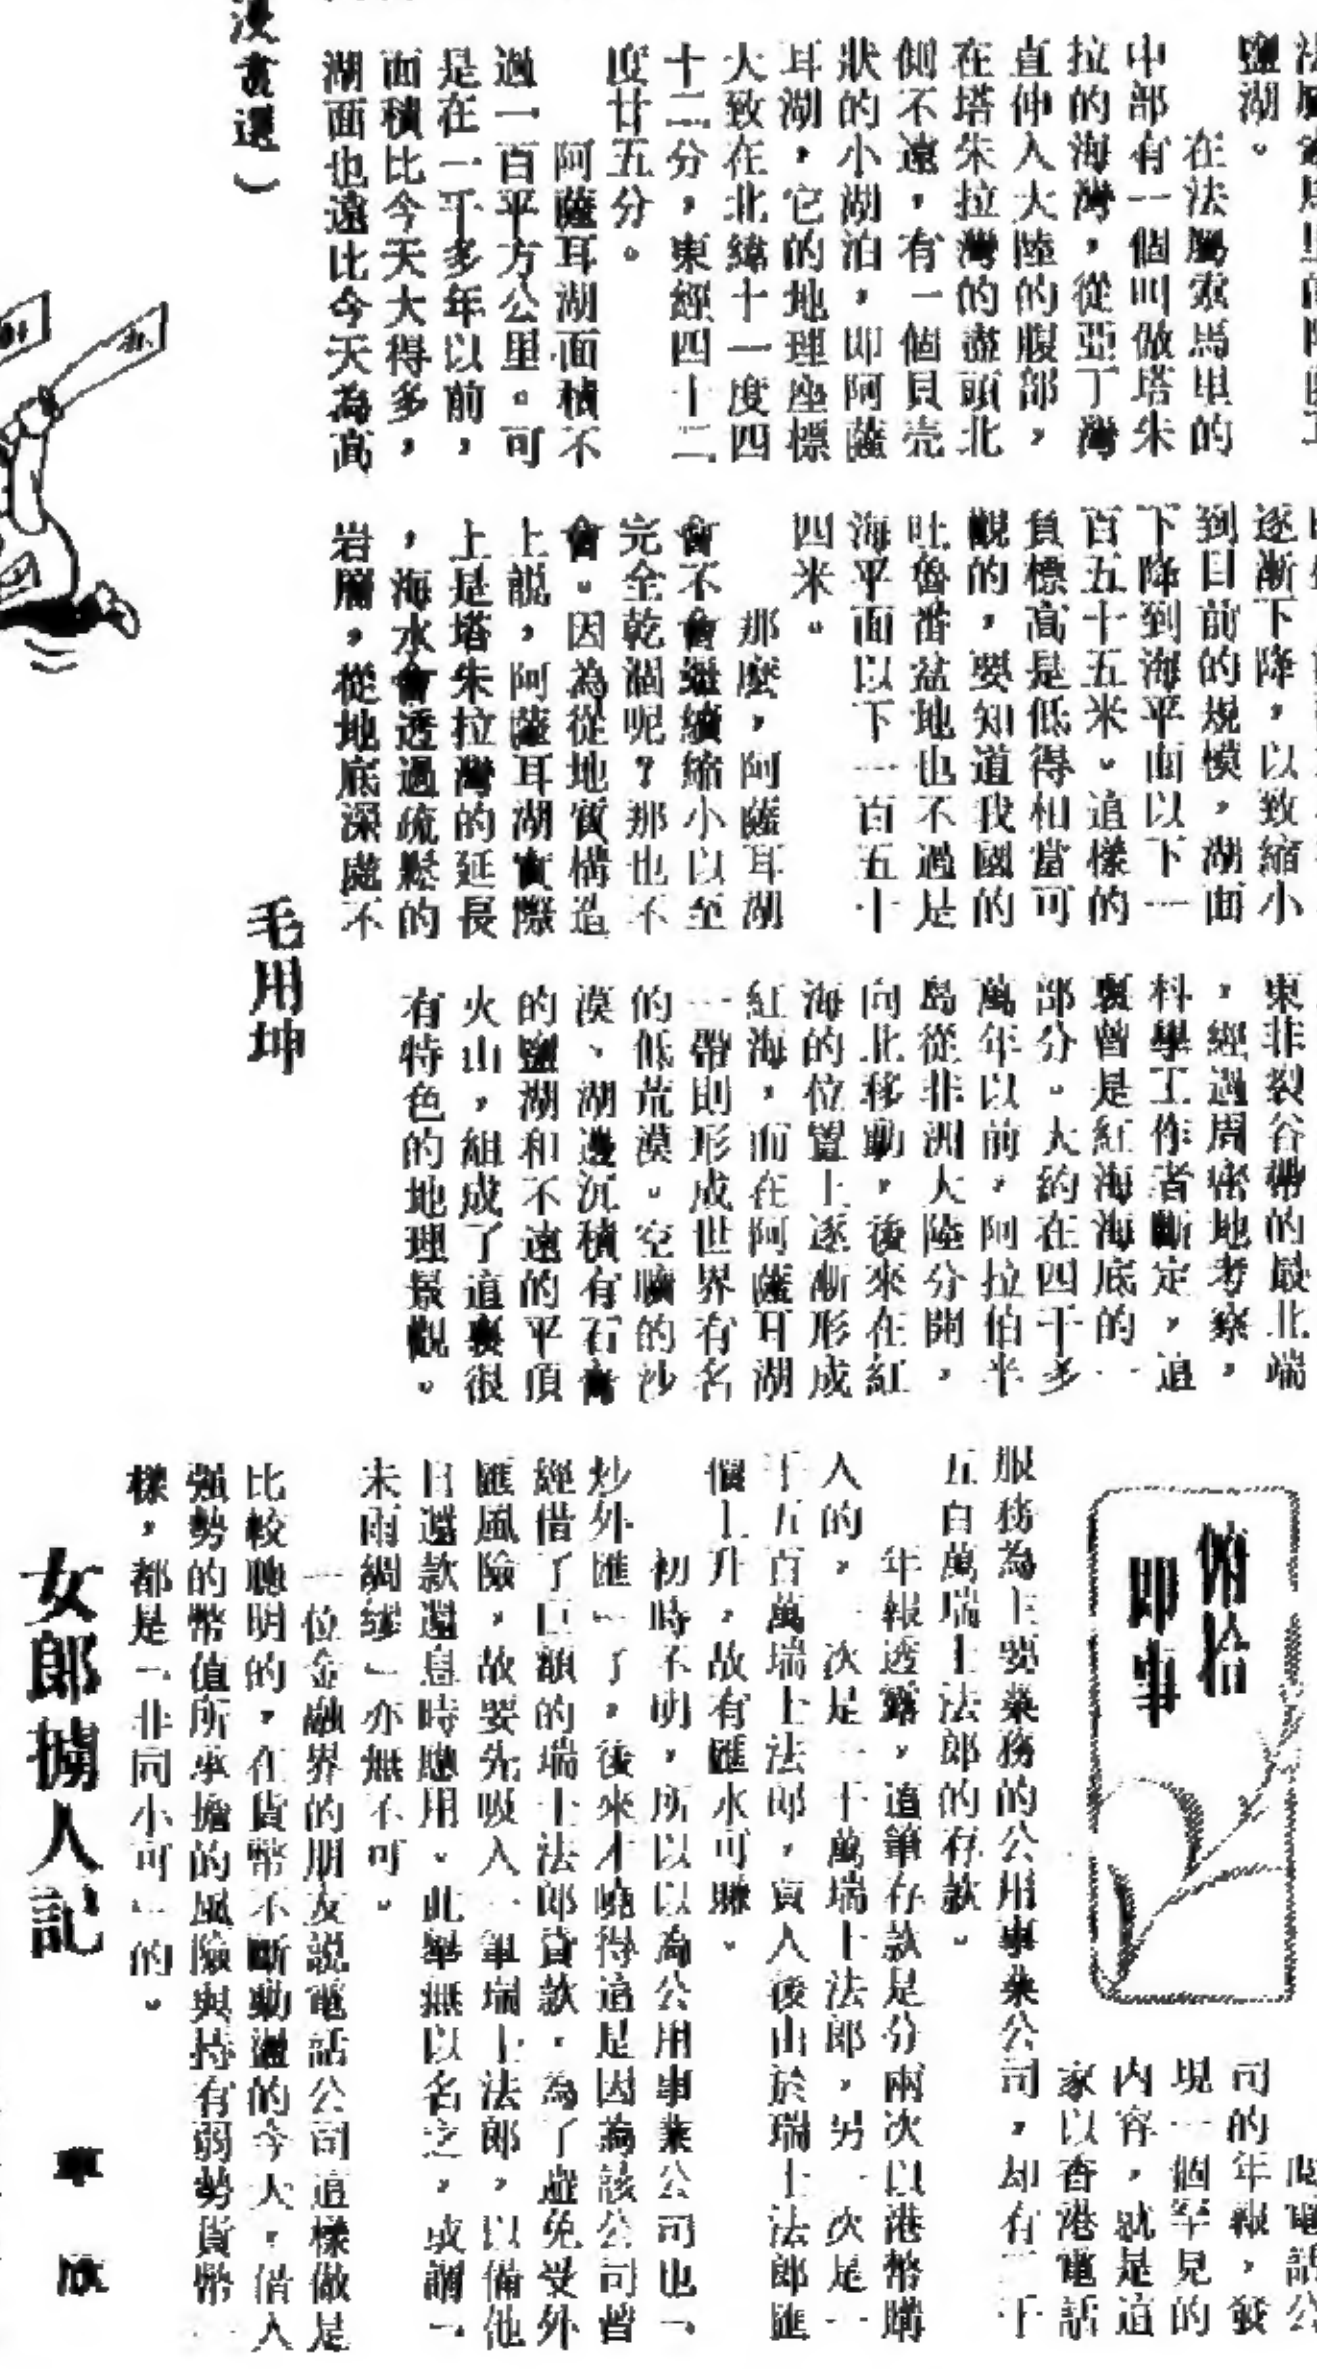 鹽湖。
在法屬索馬里的
中部有一個叫做塔朱
拉的海灣，從亞丁灣
直伸入大陸的腹部，
在塔朱拉灣的盡頭北
側不遠，有一個貝壳
狀的小湖泊，即阿薩
耳湖，它的地理座標
大致在北緯十一度四
十二分，東經四十二
度廿五分。
阿薩耳湖面積不
過一百平方公里。可
是在一千多年以前，
面積比今天大得多，
湖面也遠比今天為高
逐漸下降，以致縮小
到目前的規模，湖面
下降到海平面以下一
百五十五米。這樣的
負標高是低得相當可
觀的，要知道我國的
吐魯番盆地也不過是
海平面以下一百五十
四米。
那麼，阿薩耳湖
會不會繼續縮小以至
完全乾涸呢？那也不
會。因為從地質構造
上說，阿薩耳湖實際
上是塔朱拉灣的延長
，海水會透過疏鬆的
岩層，從地底深處不
東非裂谷帶的最北端
，經過周密地考察，
科學工作者斷定，這
裏曾是紅海海底的一
部分。大約在四千多
萬年以前，阿拉伯半
島從非洲大陸分開，
向北移動，後來在紅
海的位置上逐漸形成
紅海，而在阿薩耳湖
一帶則形成世界有名
的低荒漠。空曠的沙
漠、湖邊沉積有石膏
的鹽湖和不遠的平頂
火山，組成了這裏很
有特色的地理景觀。
毛用坤
俯拾
即事
司的年報，發
現一個罕見的
內容，就是這
家以香港電話
服務為主要業務的公用事業公司，却有二千
五百萬瑞士法郎的存款。
年報透露，這筆存款是分兩次以港幣購
入的，一次是一千萬瑞士法郎，另一次是一
千五百萬瑞士法郎，買入後由於瑞士法郎匯
價上升，故有匯水可賺。
初時不明，所以以為公用事業公司也「
炒外匯」了，後來才曉得這是因為該公司曾
經借了巨額的瑞士法郎貸款，為了避免受外
匯風險，故要先吸入一筆瑞士法郎，以備他
日還款還息時應用。此舉無以名之，或謂「
未雨綢繆」亦無不可。
一位金融界的朋友說電話公司這樣做是
比較聰明的，在貨幣不斷動盪的今天，借入
強勢的幣值所承擔的風險與持有弱勢貨幣一
樣，都是「非同小可」的。
女郎擄人記